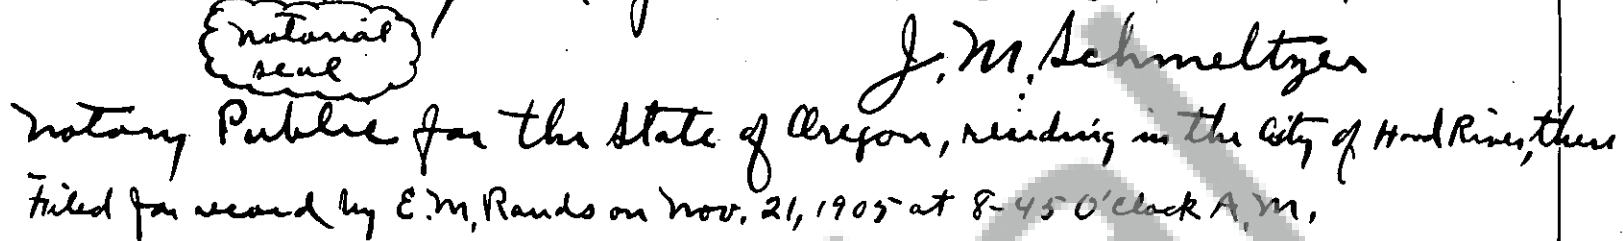 notarial
seal
J. M. Schmeltzer
Notary Public for the State of Oregon, residing in the City of Hood River, there
Filed for record by E. M. Rands on Nov. 21, 1905 at 8-45 O'clock A. M.